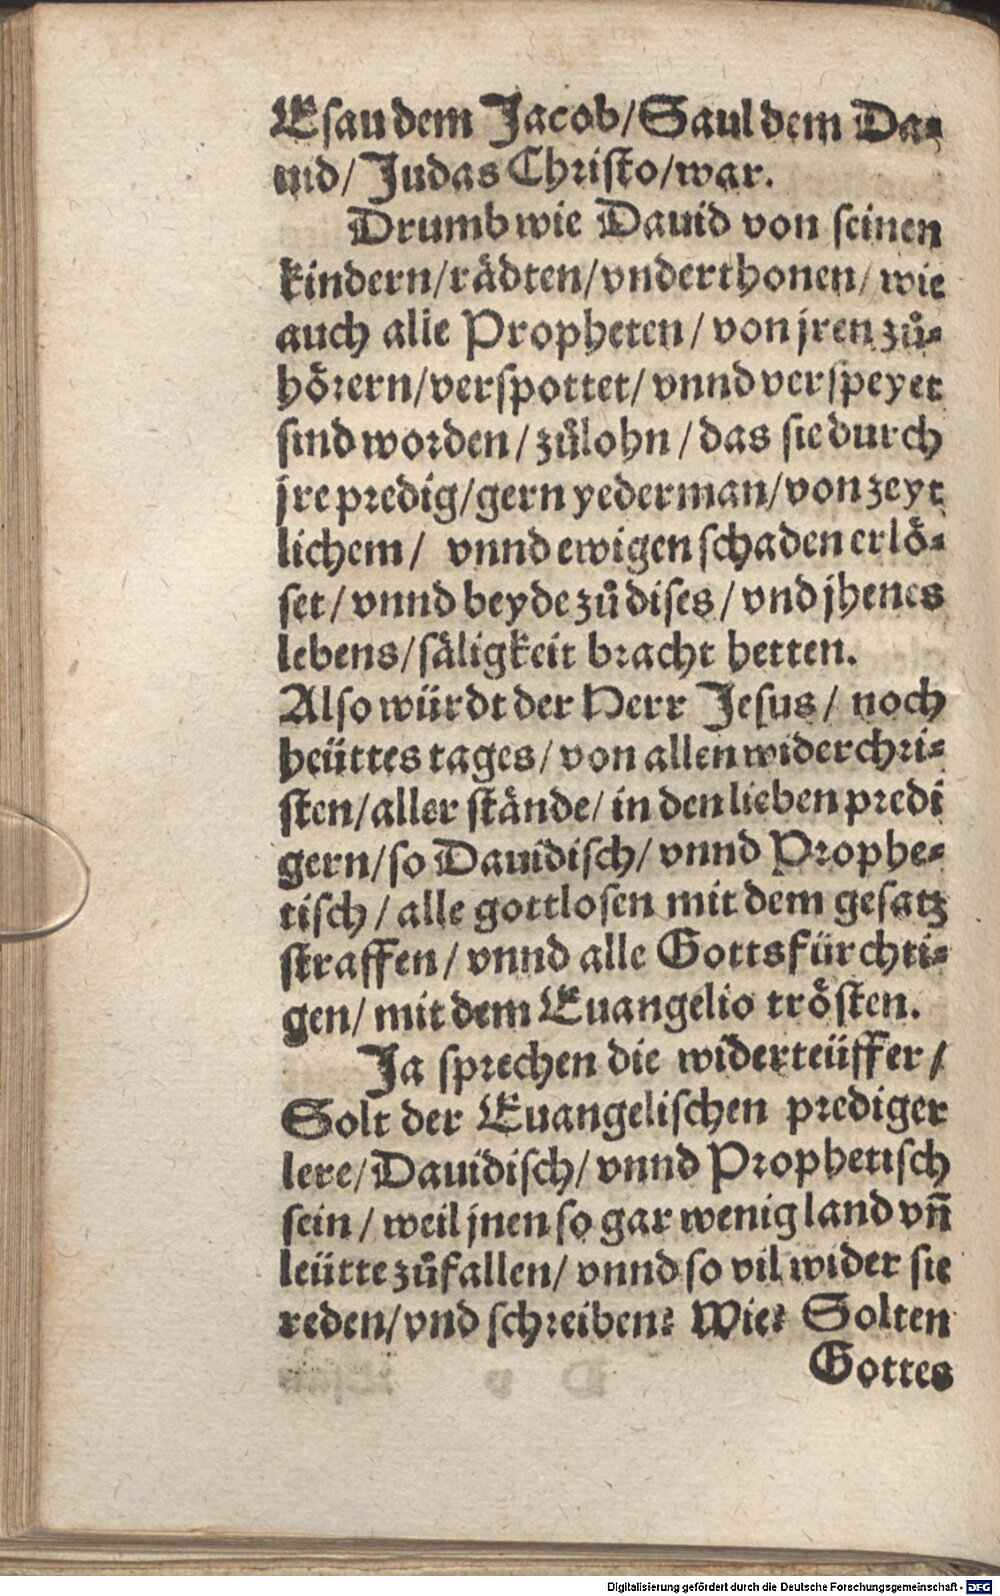 Eſau dem Jacob/Saul dem Da⸗
uid/ Judas Chriſto/war.
Drumb wie Dauid von ſeinen
kindern/rådten/vnderthonen/ wie
auch alle Propheten/ von jren zů⸗
hörern/verſpottet/ vnnd verſpeyet
ſind worden/ zůlohn/ das ſie durch
jre predig/gern yederman/von zeyt
lichem/ vnnd ewigen ſchaden erlö⸗
ſet/ vnnd beyde zů diſes/ vnd jhenes
lebens/ſäligkeit bracht hetten.
Alſo würdt der Herr Jeſus/ noch
heüttes tages/ von allen widerchri⸗
ſten/aller ſtände/ in den lieben predi
gern/ſo Dauidiſch/ vnnd Prophe⸗
tiſch/ alle gottloſen mit dem geſatz
ſtraffen/ vnnd alle Gottsfürchti⸗
gen/ mit dem Euangelio tröſten.
Ja ſprechen die widerteüffer/
Solt der Euangeliſchen prediger
lere/Dauidiſch/ vnnd Prophetiſch
ſein/ weil jnen ſo gar wenig land vñ
leütte zůfallen/ vnnd ſo vil wider ſie
reden/vnd ſchreiben? Wie? Solten
Gottes
Digitalisierung gefördert durch die Deutsche Forschungsgemeinschaft - DFG